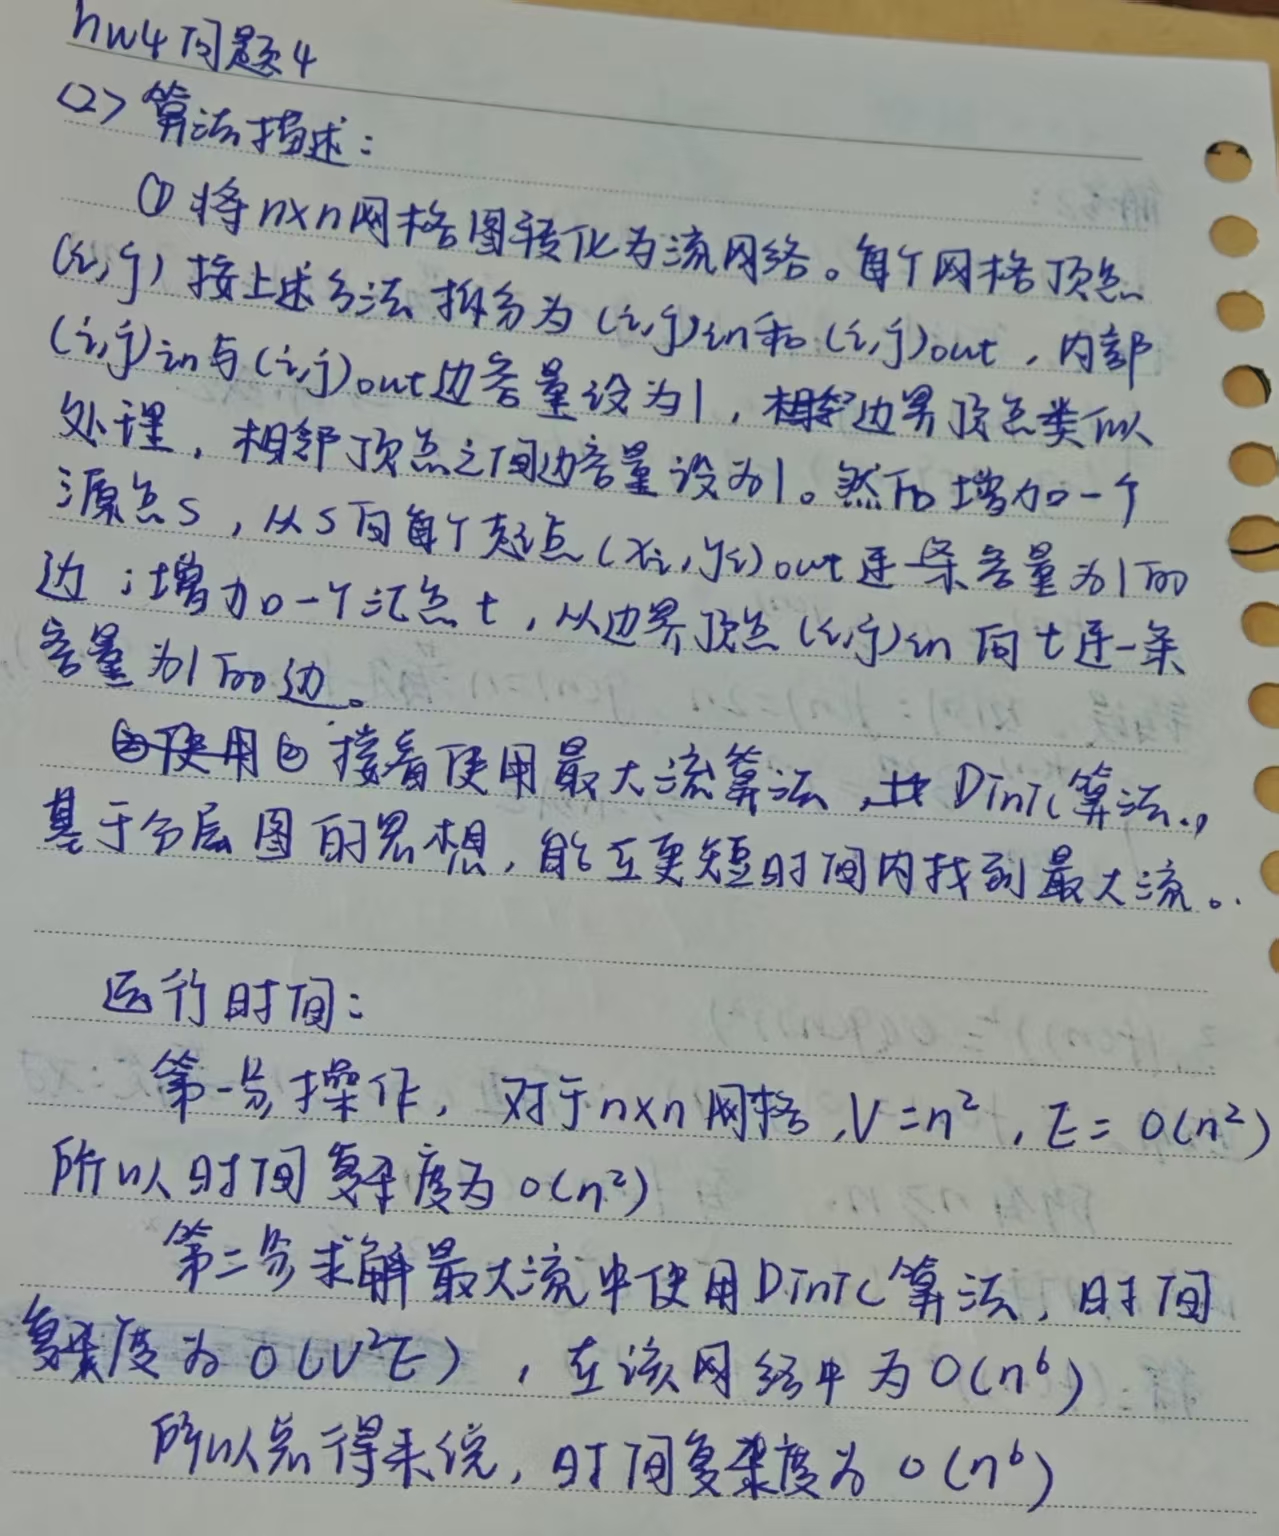 hw4问题4
<2>算法描述：
① 将n×n网格图转化为流网络。每个网格顶点
(i,j)按上述方法拆分为(i,j)in和(i,j)out，内部
(i,j)in与(i,j)out边容量设为1，相邻边界顶点类似
处理，相邻顶点之间边容量设为1。然后增加一个
源点s，从s向每个起点(xi,yi)out连一条容量为1的
边；增加一个汇点t，从边界顶点(i,j)in向t连一条
容量为1的边。
②使用② 接着使用最大流算法，Dinic算法，
基于分层图的思想，能在更短时间内找到最大流。
运行时间：
第一步操作，对于n×n网格，V=n²，E=O(n²)
所以时间复杂度为O(n²)
第二步求解最大流中使用Dinic算法，时间
复杂度为O(V²E)，在该网络中为O(n⁶)
所以总得来说，时间复杂度为O(n⁶)